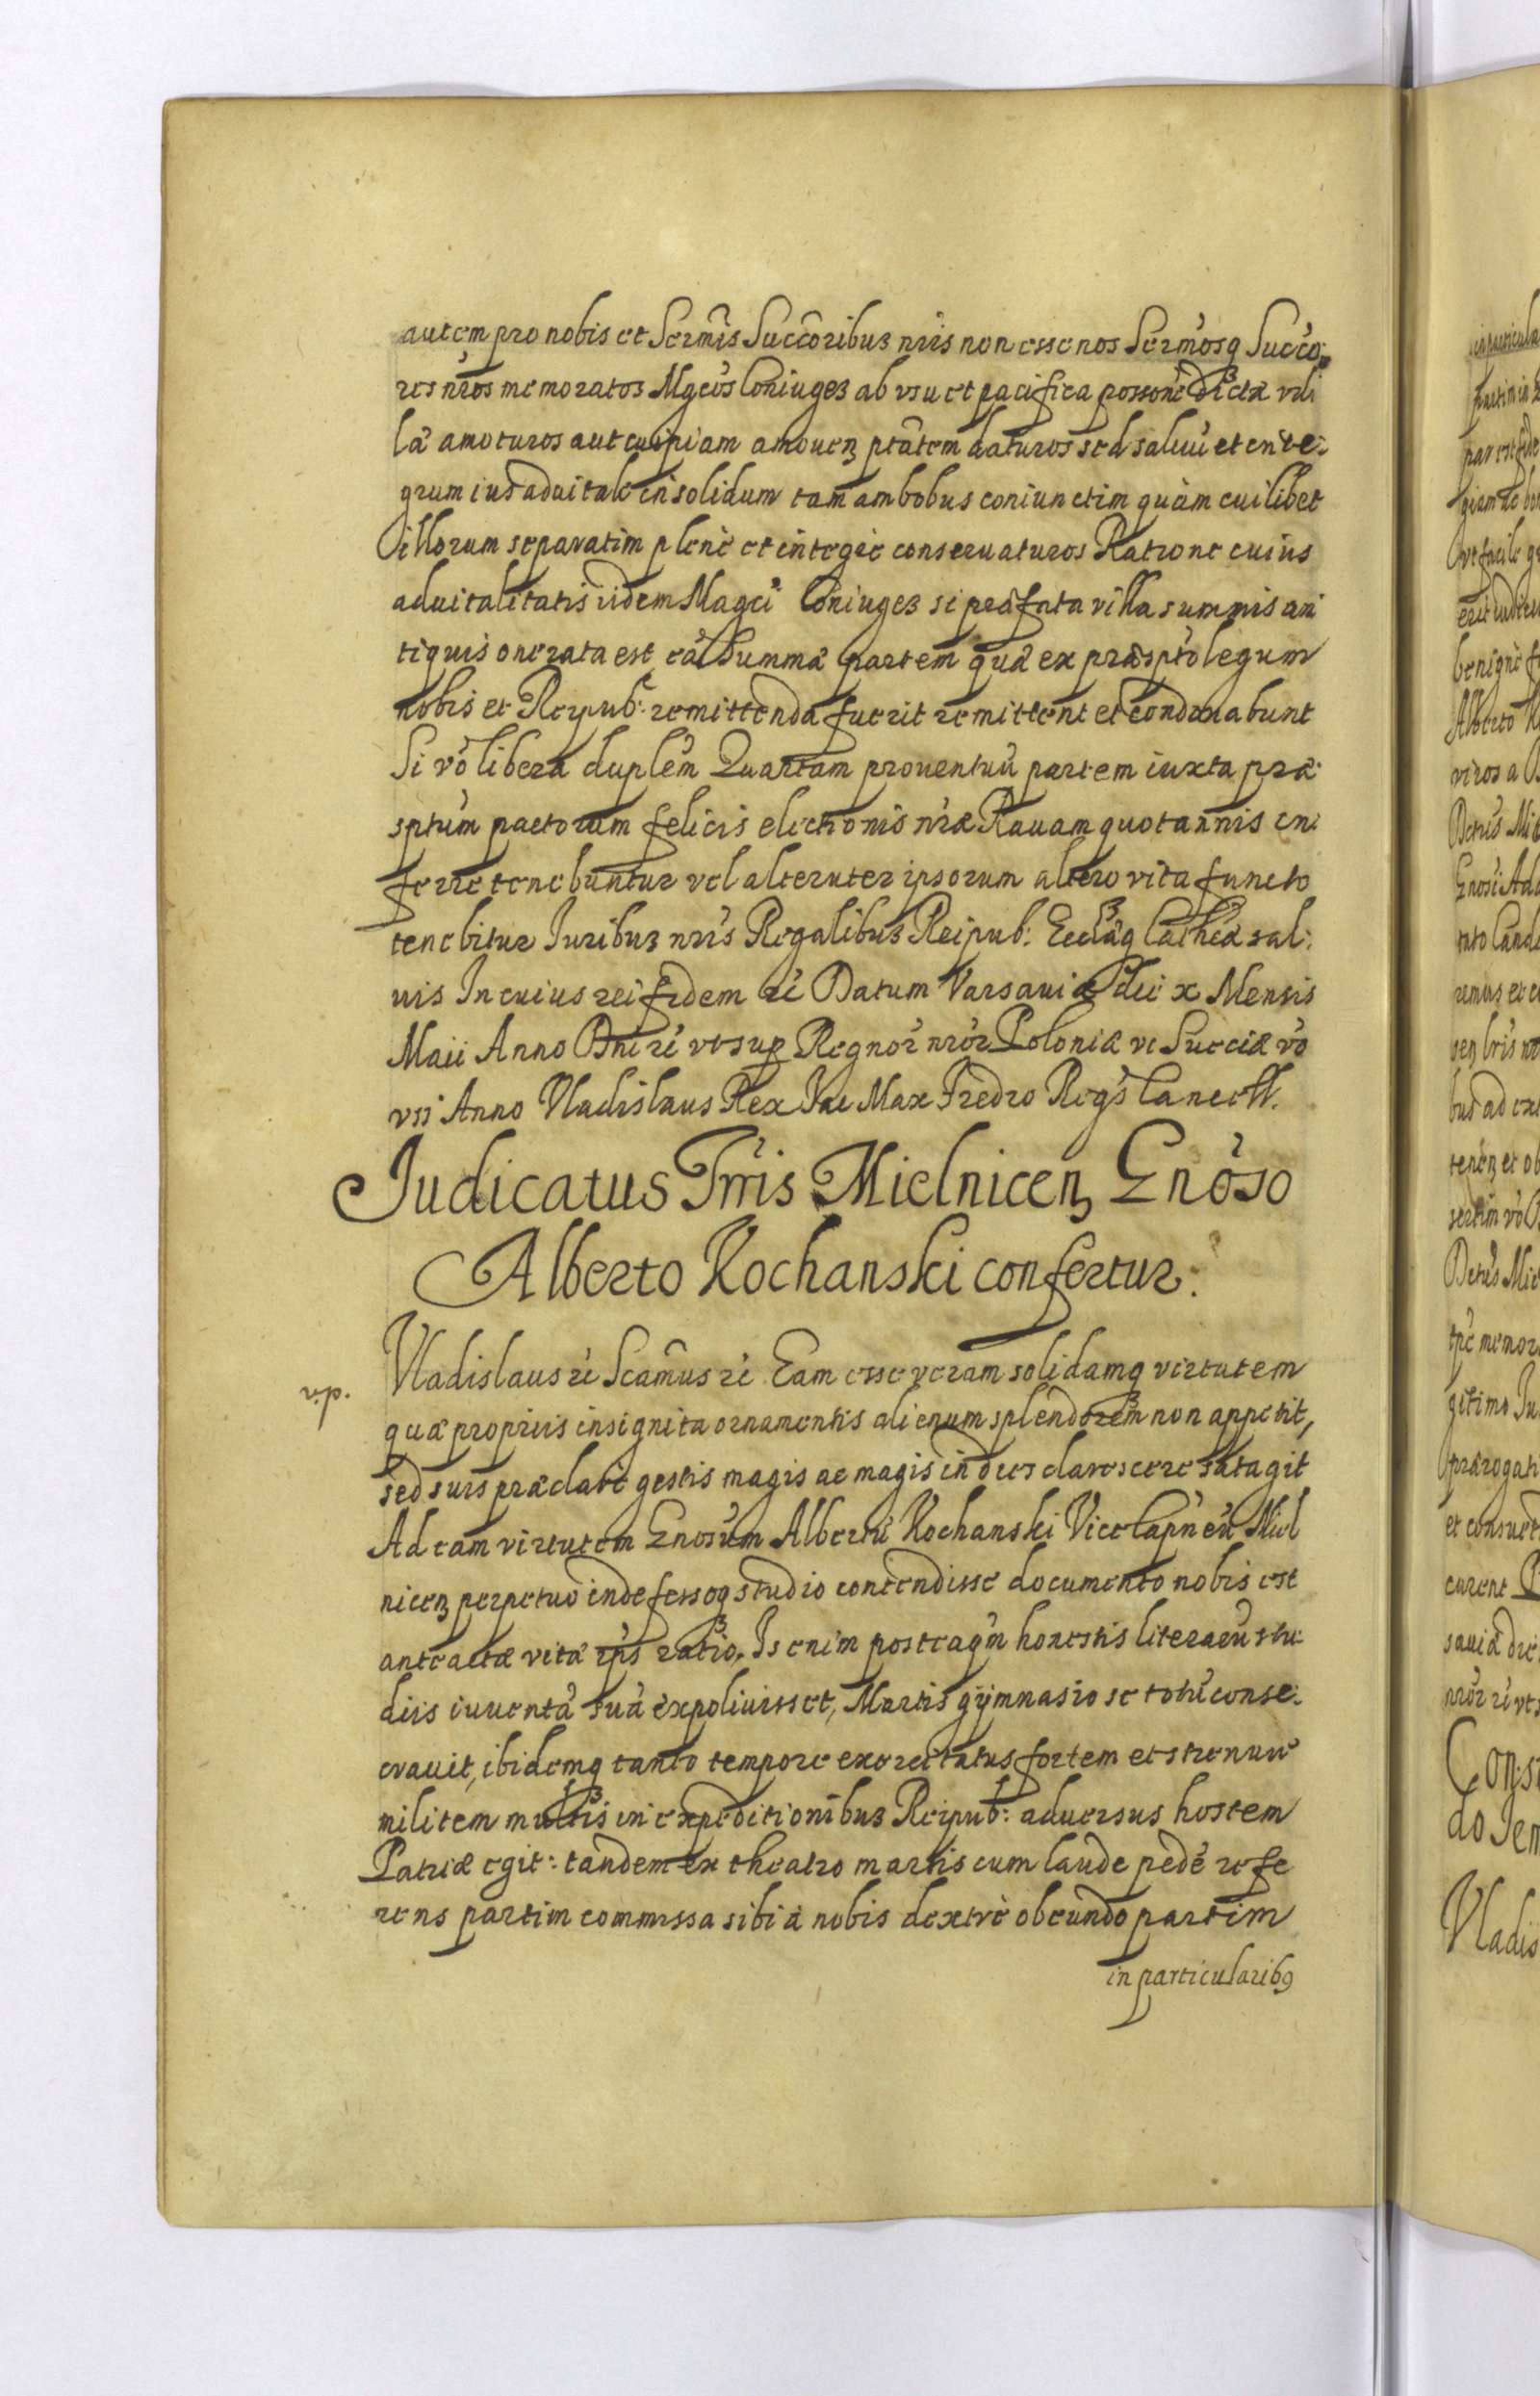 autem pro nobis et Sermis Succoribus nris non esse nos Sermosq Succo:
res nros memoratos Mgcos Coniuges ab vsu et pacifica possone dictæ vil
læ amoturos aut cuipiam amouen ptatem daturos sed saluu et inte:
grum ius aduitale in solidum tam ambobus coniunctim quàm cuilibet
illorum separatim plenè et integrè conseruaturos Ratione cuius
aduitalitatis iidem Magci Coniuges si præfata villa summis an
tiquis onerata est, eà Summæ partem quæ ex præsptò legum
nobis et Reipub: remittenda fuerit remittent et condonabunt
Si vò libera duplem Quartam prouentuù partem iuxta præ:
sptum pactorum felicis electionis nræ Rauam quotannis in:
ferre tenebuntur vel alteruter ipsorum altero vita functo
tenebitur Iuribus nris Regalibus Reipub: Ecclæq Cathcæ sal:
uis In cuius rei fidem rc Datum Varsauiæ die x Mensis
Maii Anno Dni rc vt sup Regnor nror Poloniæ vc Sueciæ vò
vii Anno Vladislaus Rex Iac Max Fredro Regs Cancell.
Judicatus Trris Mielnicen Gnoso
Alberto Kochanski confertur:
v.p.
Vladislaus rc Scamus rc Eam esse veram solidamq virtutem
quæ propriis insignita ornamentis alienum splendorem non appetit,
sed suis præclarè gestis magis ac magis in dies clarescere satagit
Ad eam virtutem Gnosum Albertu Kochanski Vice Capneu Miel
nicen perpetuò indefessoq studio contendisse documento nobis est
anteactæ vitæ ips ratio. Is enim posteaqm honestis literaru stu:
diis iuuentà suà expoliuisset, Martis gymnasio se totu conse:
crauit, ibidemq tanto tempore exercitatus fortem et strenuu
militem multis in expeditionibus Reipub: aduersus hostem
Patriæ egit: tandem ex theatro martis cum laude pedè refe
rens partim commissa sibi à nobis dextrè obeundo partim
in particularib9